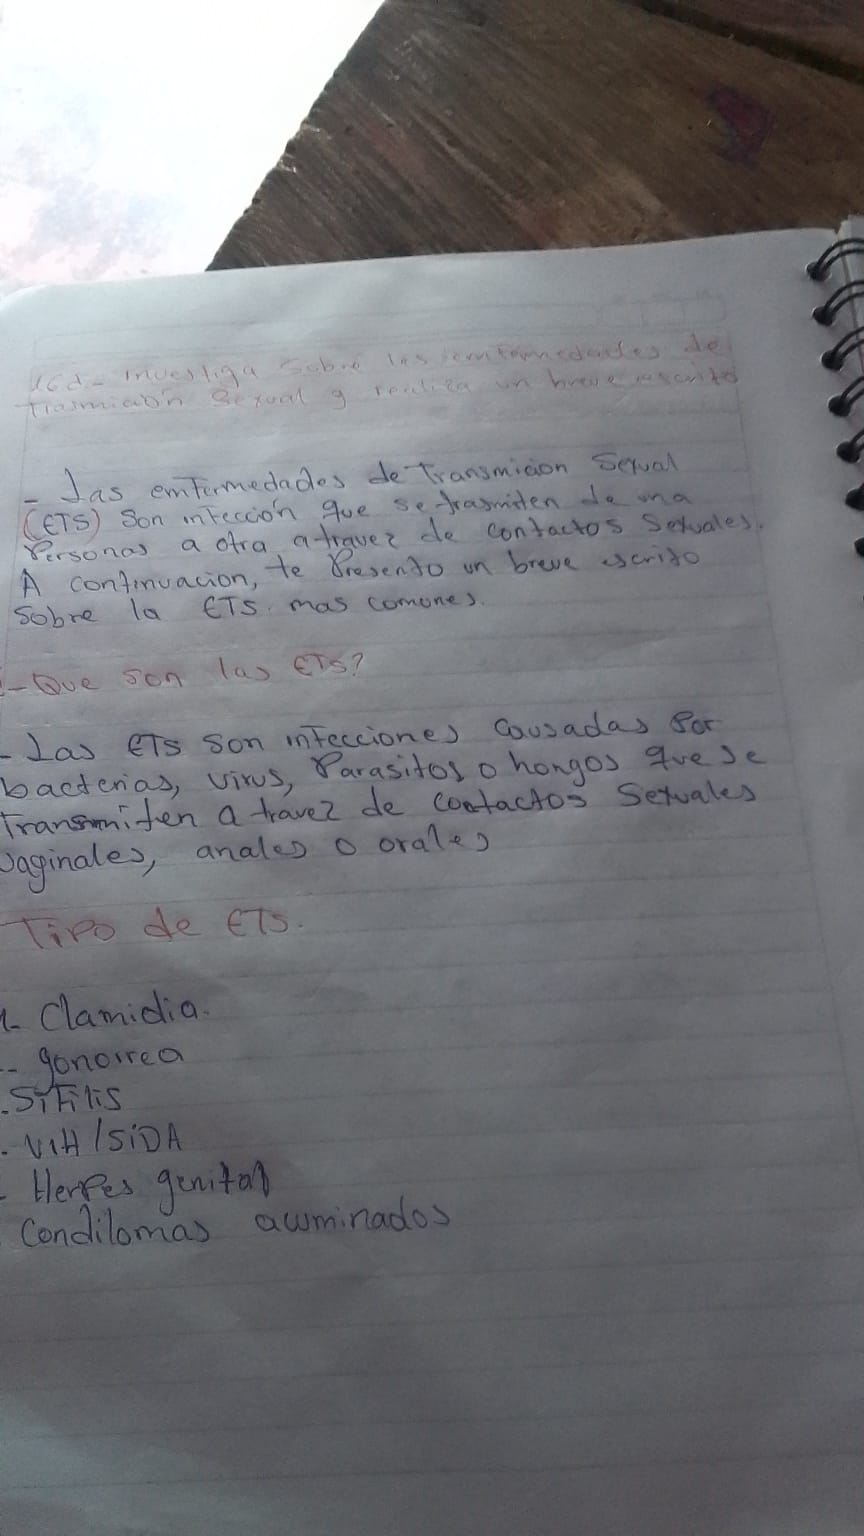 Investiga sobre las emfermedades de
trasmición sexual y realiza un breve escrito
- Las emfermedades de Transmicion Sexual
(ETS) Son infección que se trasmiten de una
Personas a otra a travez de contactos Sexuales.
A continuacion, te Presento un breve escrito
Sobre la ETS. mas comones.
- Que son las ETS?
- Las ETS son infecciones Cousadas Por
bacterias, virus, Parasitos o hongos que se
Transmiten a travez de contactos Sexuales
vaginales, anales o orales
Tipo de ETS.
1- Clamidia.
-- gonorrea
- Sifilis
- VIH/SiDA
- Herpes genital
Condilomas acuminados